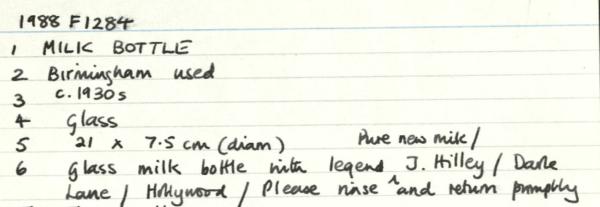 1988 F1284
1 MILK BOTTLE
2 Birmingham used
3 c.1930s
4 Glass
5 21 x 7.5 cm (diam) Pure new milk /
6 Glass milk bottle with legend J. Hilley / Dark
Lane / Hollywood / Please rinse ^ and return promptly